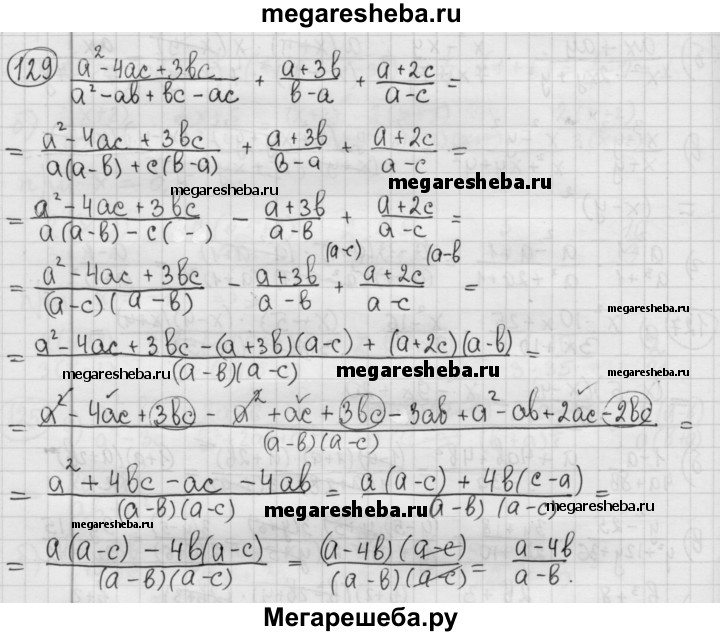 megaresheba.ru
129 (a² - 4ac + 3bc)/(a² - ab + bc - ac) + (a + 3b)/(b - a) + (a + 2c)/(a - c) =
= (a² - 4ac + 3bc)/(a(a - b) + c(b - a)) + (a + 3b)/(b - a) + (a + 2c)/(a - c) =
megaresheba.ru megaresheba.ru
= (a² - 4ac + 3bc)/(a(a - b) - c( - )) - (a + 3b)/(a - b) + (a + 2c)/(a - c) =
= (a² - 4ac + 3bc)/((a - c)( a - b)) - (a + 3b)/(a - b) (a - c) + (a + 2c)/(a - c) (a - b =
megaresheba.ru
= (a² - 4ac + 3bc - (a + 3b)(a - c) + (a + 2c)(a - b))/((a - b)(a - c)) =
megaresheba.ru megaresheba.ru
= (a² - 4ac + 3bc - a² + ac + 3bc - 3ab + a² - ab + 2ac - 2bc)/((a - b)(a - c)) =
= (a² + 4bc - ac - 4ab)/((a - b)(a - c)) = (a(a - c) + 4b(c - a))/(a - b)(a - c) =
megaresheba.ru megaresheba.ru megaresheba.ru
= (a(a - c) - 4b(a - c))/((a - b)(a - c)) = ((a - 4b)(a - c))/((a - b)(a - c)) = (a - 4b)/(a - b).
Мегарешеба.ру